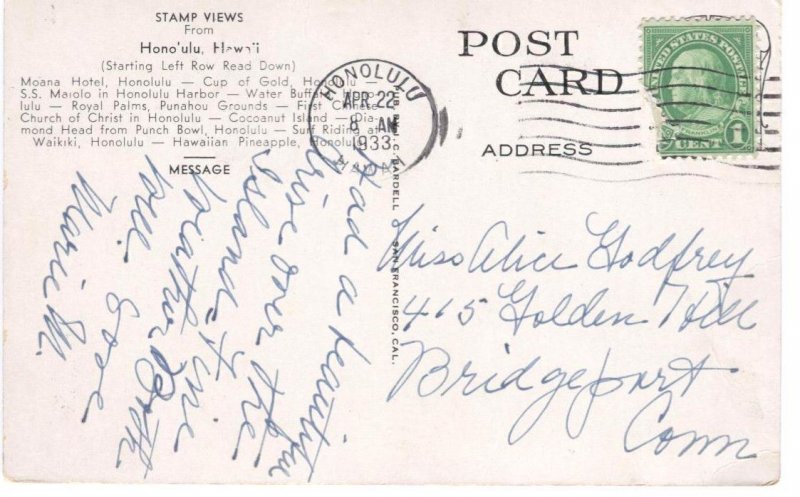 STAMP VIEWS
From
Hono'ulu, Hawaii
(Starting Left Row Read Down)
Moana Hotel, Honolulu — Cup of Gold, Honolulu —
S.S. Malolo in Honolulu Harbor — Water Buffalo, Hono-
lulu — Royal Palms, Punahou Grounds — First Chinese
Church of Christ in Honolulu — Cocoanut Island — Dia-
mond Head from Punch Bowl, Honolulu — Surf Riding at
Waikiki, Honolulu — Hawaiian Pineapple, Honolulu
MESSAGE
Had a beautiful
drive over the
Island. Fine
weather Both
well. Love
Marie M.
PUB. BY C. BARDELL SAN FRANCISCO, CAL.
HONOLULU
APR 22
8 AM
1933
HAWAII
POST
CARD
ADDRESS
UNITED STATES POSTAGE
1 CENT
Miss Alice Godfrey
415 Golden Hill
Bridgeport
Conn